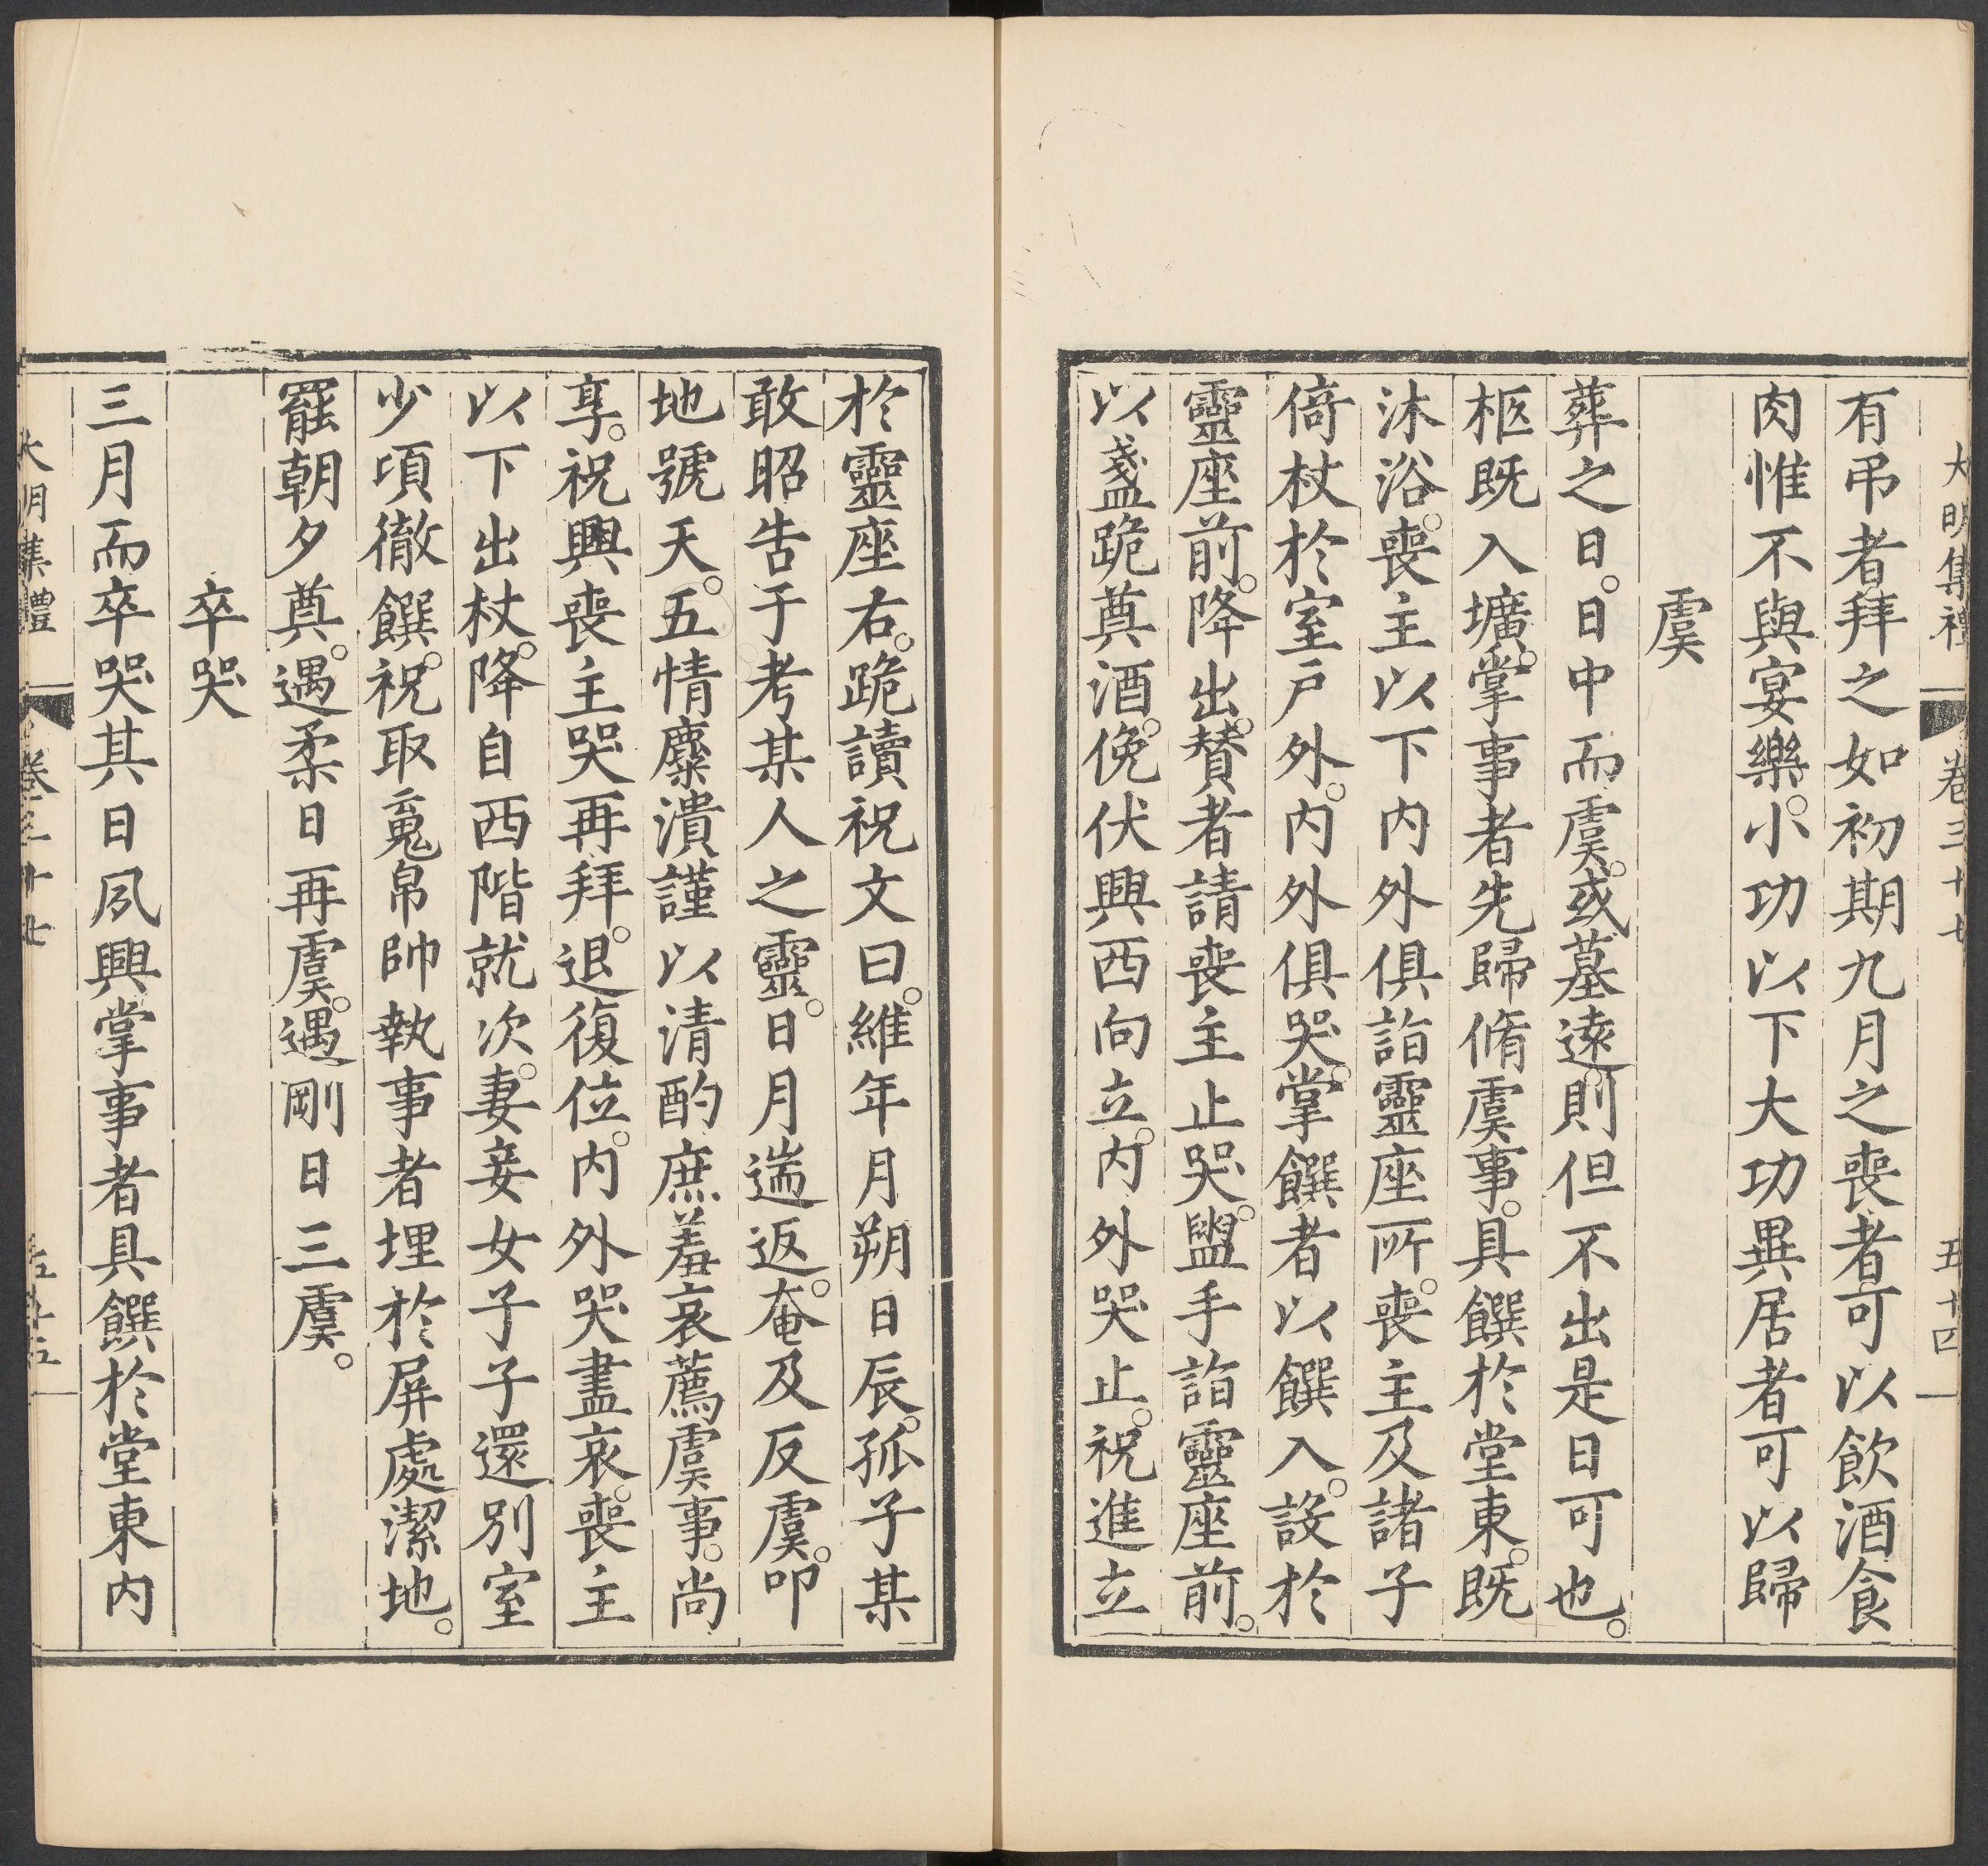 大明集禮 卷三十七 五十四
有吊者拜之如初期九月之喪者可以飲酒食
肉惟不與宴樂。小功以下大功異居者可以歸
虞
葬之日。日中而虞。或墓遠。則但不出是日可也。
柩既入壙。掌事者先歸脩虞事。具饌於堂東。既
沐浴。喪主以下内外俱詣靈座所。喪主及諸子
倚杖於室戸外。内外俱哭。掌饌者以饌入。設於
靈座前。降出。賛者請喪主止哭。盥手詣靈座前。
以盞跪奠酒。俛伏興西向立。内外哭止。祝進立
於靈座右。跪讀祝文曰。維年月朔日辰。孤子某
敢昭告于考某人之靈。日月遄返。奄及反虞。叩
地號天。五情麋潰謹以清酌庶羞哀薦虞事。尚
享。祝興喪主哭再拜。退復位。内外哭盡哀。喪主
以下出杖。降自西階就次。妻妾女子子還別室
少頃徹饌。祝取䰟帛帥執事者埋於屏處潔地。
罷朝夕奠。遇柔日再虞。遇剛日三虞。
卒哭
三月而卒哭其日夙興掌事者具饌於堂東内
大明集禮 卷三十七 五十五